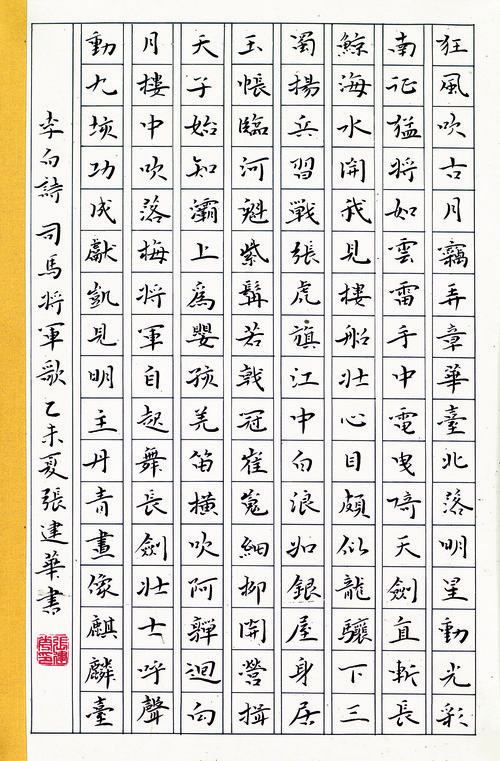 狂風吹古月竊弄章華臺北落明星動光彩
南征猛将如雲雷手中電曳倚天劍直斬長
鯨海水開我見樓船壯心目頗似龍驤下三
蜀揚兵習戦張虎旗江中白浪如銀屋身居
玉帳臨河魁紫髯若戟冠崔嵬細柳開營揖
天子始知灞上爲嬰孩羌笛橫吹阿嚲迴向
月樓中吹落梅将軍自起舞長劍壯士呼聲
動九垓功成獻凱見明主丹青畫像麒麟臺
李白詩 司馬将軍歌 乙未夏張建華書